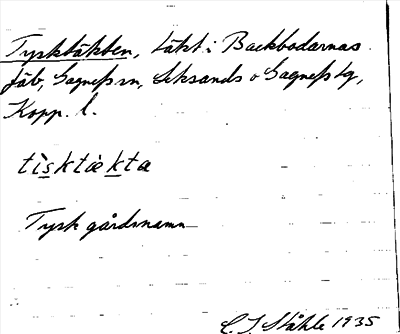 Tysktäkten, täkt i Backbodarnas
fäb, Gagnefs sn, Leksands o Gagnefs tg,
Kopp. l.
tìsktækta
Tysk gårdsnamn
C. I. Ståhle 1935